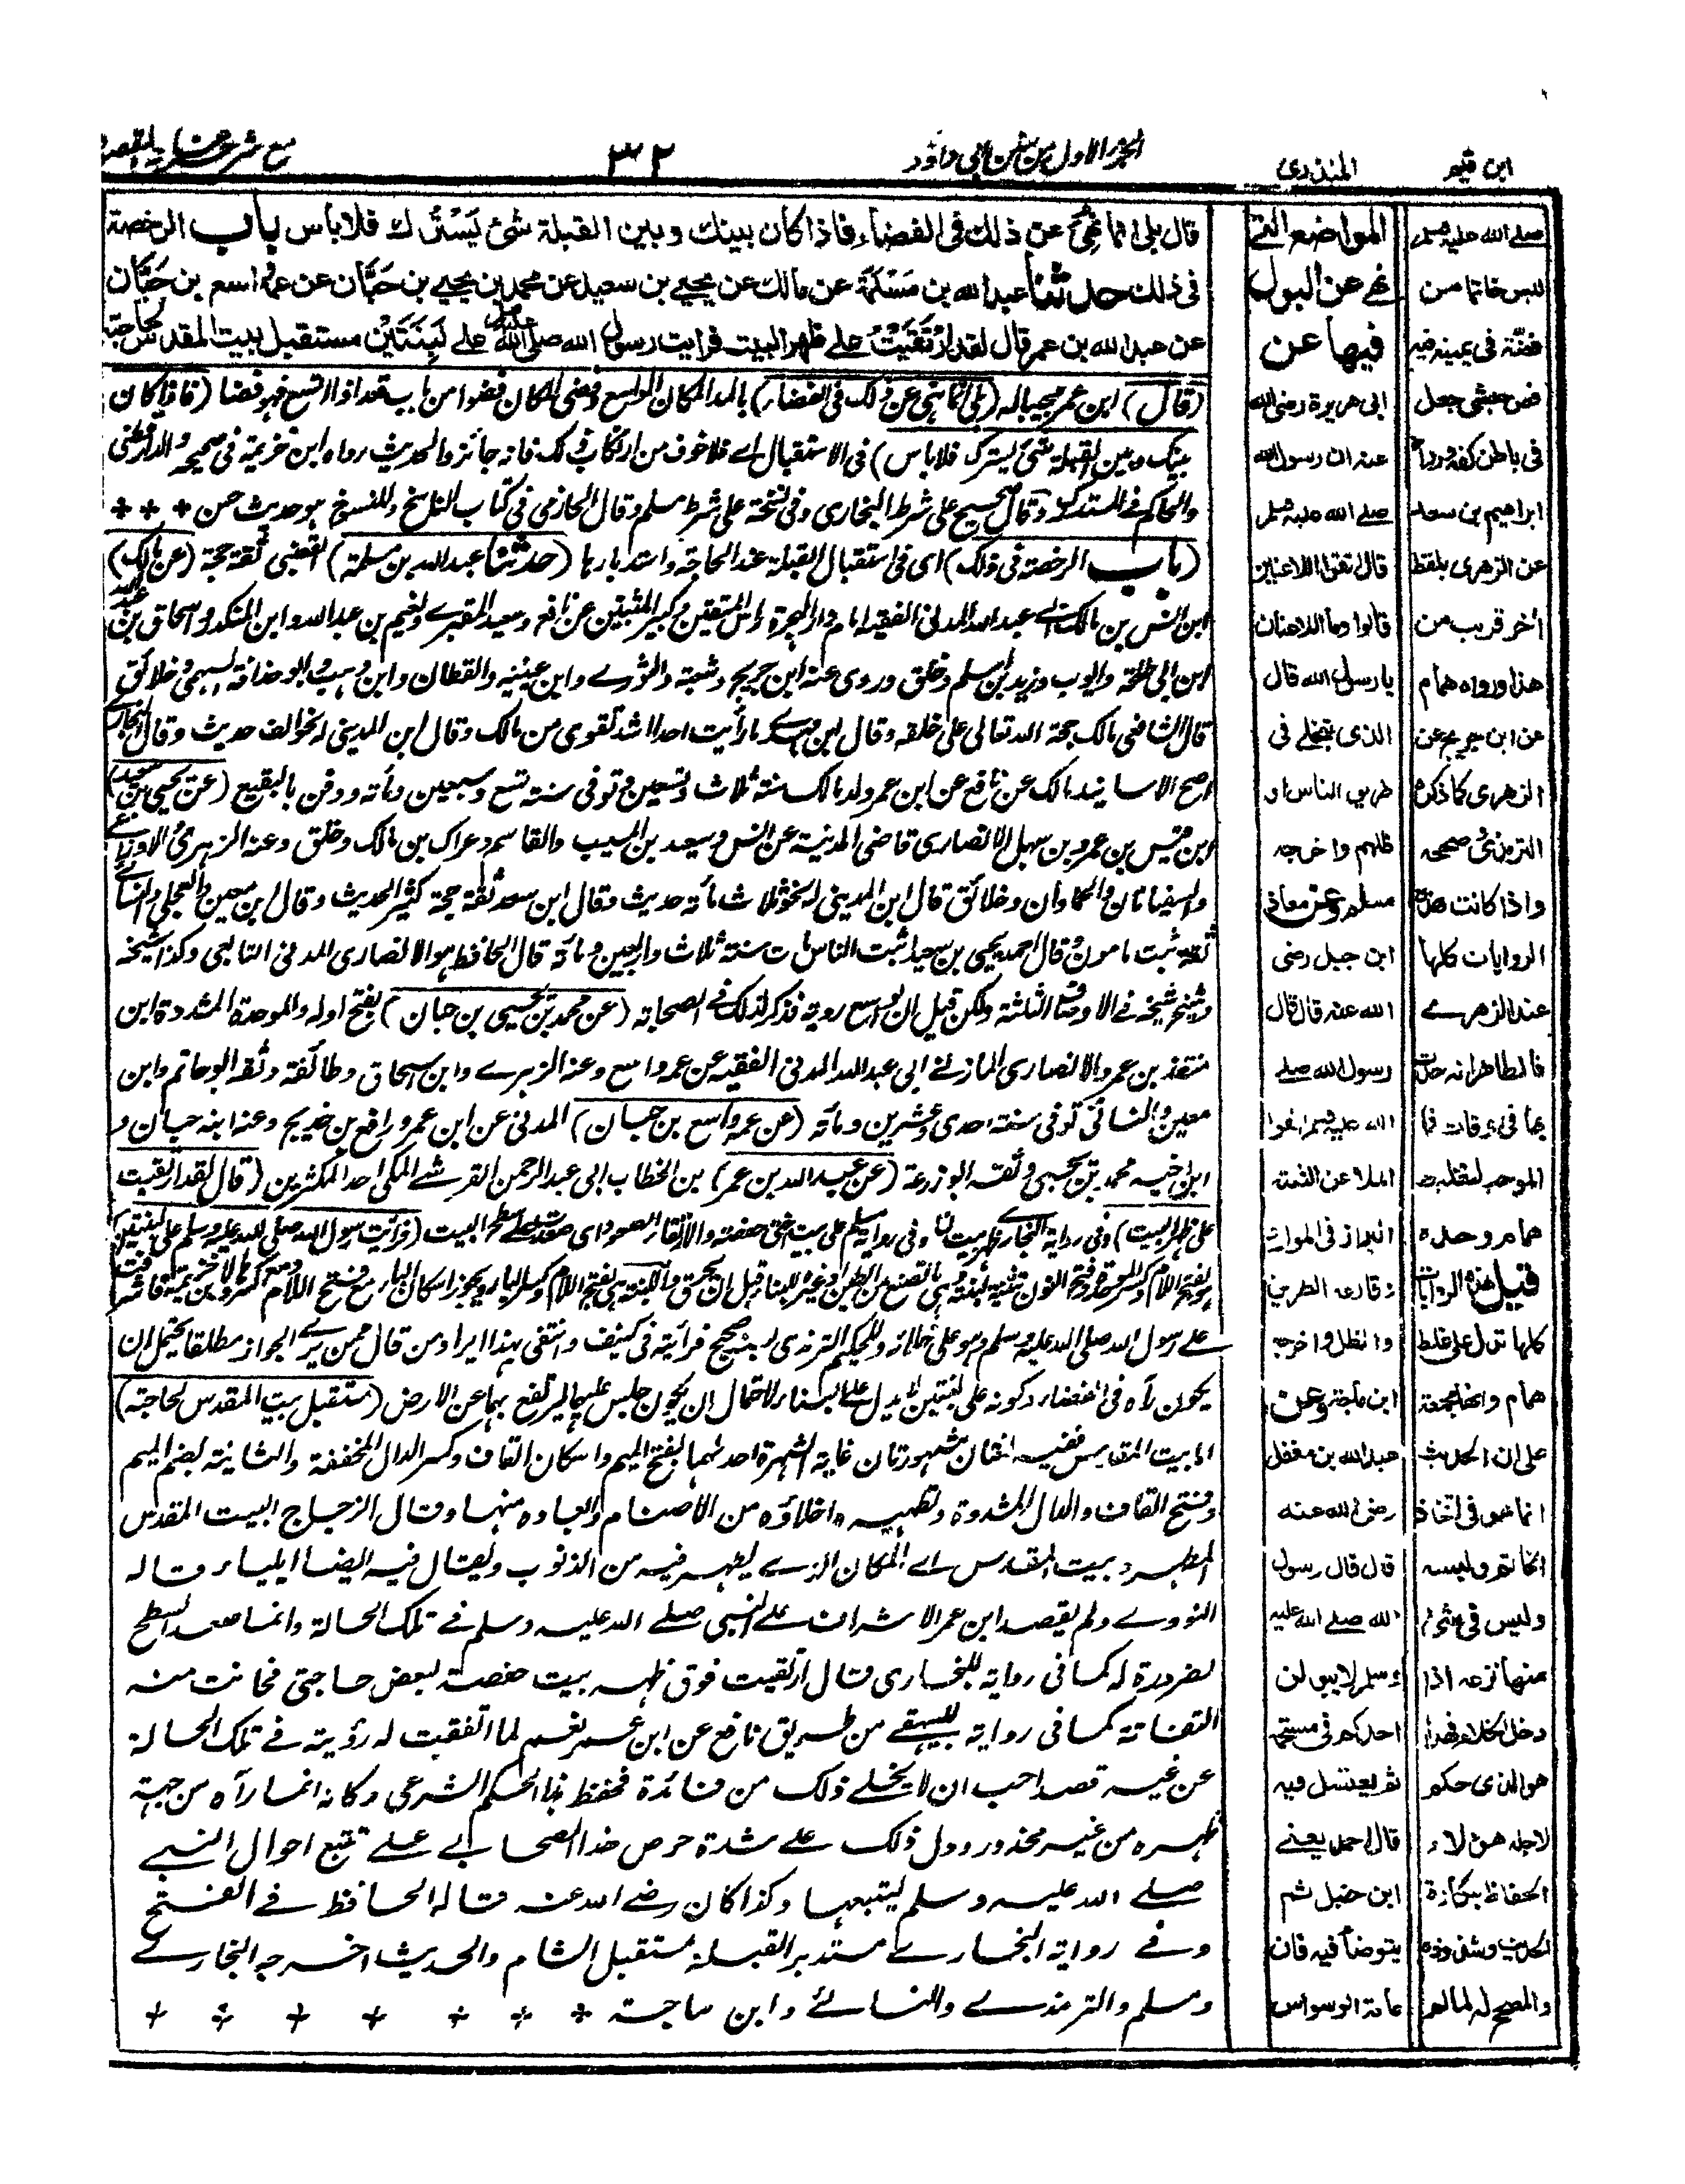 ابن قيم
المنذري
الجزء الاول من سنن ابي داؤد
٣٢
مع شرحه غاية المقصود
قال بلى انما نُهِيَ عن ذلك في الفضاء فاذا كان بينك وبين القبلة شئ يَسْتُرُك فلا باس باب الرخصة
في ذلك حدثنا عبد الله بن مَسْلَمَة عن مالك عن يحيى بن سعيد عن محمد بن يحيى بن حَبَّان عن عمه واسع بن حَبَّان
عن عبد الله بن عمر قال لقد ارْتَقَيْتُ على ظهر البيت فرايت رسول الله صلى الله عليه على لَبِنَتَيْن مستقبل بيت المقدس لحاجته
(قال) ابن عمر مجيبا له (بلى انما نهى عن ذلك في الفضاء) بالمد المكان الواسع وفضى المكان فضوا من باب قعد اذا اتسع فهو فضا (فاذا كان
بينك وبين القبلة شئ يسترك فلا باس) في الاستقبال اے فلا خوف من ارتكاب ذلك فانه جائز والحديث رواه ابن خزيمة في صحيحه والدارقطني
والحاكم في المستدرك وقال صحيح على شرط البخاري وفي نسخة على شرط مسلم وقال الحازمي في كتاب الناسخ والمنسوخ هو حديث حسن
(باب الرخصة في ذلك) اى في استقبال القبلة عند الحاجة واستدبارها (حدثنا عبد الله بن مسلمة) القعنبي ثقة حجة (عن مالك)
ابن انس بن مالك اے عبد الله المدني الفقيه امام دار الهجرة راس المتقين وكبير المثبتين عن نافع وسعيد المقبرے ونعيم بن عبد الله وابن المنكدر واسحاق بن عبد الله
ابن ابي طلحة وايوب وزيد بن اسلم وخلق وروى عنه ابن جريج وشعبة والثورے وابن عيينه والقطان وابن وهب وابو حذافة السهمي وخلائق
قال الشافعي مالك حجة الله تعالى على خلقه وقال ابن مهدے ما رأيت احدا اشد تقوى من مالك وقال ابن المديني له نحو الف حديث وقال البخارے
اصح الاسانيد مالك عن نافع عن ابن عمر ولد مالك سنة ثلاث وتسعين وتوفي سنة تسع وسبعين ومأته ودفن بالبقيع (عن يحيى بن سعيد)
ابن قيس بن عمرو بن سهل الانصاري قاضي المدينة عن انس وسعيد بن المسيب والقاسم وعراك بن مالك وخلق وعنه الزهرى والاوزاعے
والسفيانان والحمادان وخلائق قال ابن المديني له نحو ثلاث مأته حديث وقال ابن سعد ثقة حجة كثير الحديث وقال ابن معين والعجلي والنسائے
ثقة ثبت مامون وقال احمد يحيى بن سعيد اثبت الناس مات سنة ثلاث واربعين ومأته قال الحافظ هو الانصاري المدني التابعي وكذا شيخه
وشيخ شيخه فى الاوصاف الثلثة ولكن قيل ان لواسع روية فذكر لذلك في الصحابة (عن محمد بن يحيى بن حبان) بفتح اوله والموحدة المشددة ابن
منقذ بن عمرو الانصاري المازنے ابي عبد الله المدني الفقيه عن عمه واسع وعنه الزهرے وابن اسحاق وطائفة وثقه ابو حاتم وابن
معين والنسائي توفي سنة احدى وعشرين ومأته (عن عمه واسع بن حبان) المدني عن ابن عمر ورافع بن خديج وعنه ابنه حبان و
ابن اخيه محمد بن يحيى وثقه ابو زرعة (عن عبد الله بن عمر) بن الخطاب ابي عبد الرحمن القرشے المكي احد المكثرين (قال لقد ارتقيت
على ظهر البيت) وفي رواية البخارے ظهر بيت لنا وفي رواية مسلم على بيت اختي حفصة والارتقاء الصعود اى صعدت على سطح البيت (فرأيت رسول الله صلى الله عليه وسلم على لبنتين)
على رسول الله صلى الله عليه وسلم وهو على خلائه وللحكيم الترمذي بسند صحيح فرأيته في كنيف وانتفى بهذا ايراد من قال ممن يرے الجواز مطلقا يحتمل ان
يكون رآه في الفضاء وكونه على لبنتين لا يدل على البناء لاحتمال ان يكون جلس عليهما ليرتفع بهما عن الارض (مستقبل بيت المقدس لحاجته)
اما بيت المقدس ففيه لغتان مشهورتان غاية الشهرة احدهما بفتح الميم واسكان القاف وكسر الدال المخففة والثانية بضم الميم
وفتح القاف والدال المشددة وتطهيره واخلاؤه من الاصنام وابعاده منها وقال الزجاج البيت المقدس
المطهر وبيت المقدس اے المكان الذے يطهر فيه من الذنوب ويقال فيه ايضا ايلياء قاله
النووے ولم يقصد ابن عمر الاشراف على النبي صلے الله عليه وسلم فے تلك الحالة وانما صعد السطح
لضرورة له كما في رواية للبخاري قال ارتقيت فوق ظهر بيت حفصة لبعض حاجتي فحانت منه
التفاتة كما في رواية للبيهقے من طريق نافع عن ابن عمر نعم لما اتفقت له رؤيته فے تلك الحالة
عن غير قصد احب ان لا يخلے ذلك من فائدة فحفظ هذا الحكم الشرعي وكانه انما رآه من جهة
ظهره من غير محذور ودل ذلك علے شدة حرص هذا الصحابے علے تتبع احوال النبے
صلے الله عليه وسلم ليتبعها وكذا كان رضے الله عنه قاله الحافظ فے الفتح
وفے رواية البخارے مستدبر القبلة مستقبل الشام والحديث اخرجه البخارے
ومسلم والترمذے والنسائے وابن ماجة
المواضع التے
نهے عن البول
فيها عن
ابي هريرة رضى الله
عنه ان رسول الله
صلے الله عليه وسلم
قال اتقوا اللاعنين
قالوا وما اللاعنان
يا رسول الله قال
الذى يتخلے في
طريق الناس او
ظلهم واخرجه
مسلم وعن معاذ
ابن جبل رضى
الله عنه قال قال
رسول الله صلے
الله عليه وسلم اتقوا
الملاعن الثلثة
البراز في الموارد
وقارعة الطريق
والظل واخرجه
ابن ماجة وعن
عبد الله بن مغفل
رضى الله عنه
قال قال رسول
الله صلے الله عليه
وسلم لا يبولن
احدكم في مستحمه
ثم يغتسل فيه
قال احمد يعنے
ابن حنبل ثم
يتوضأ فيه فان
عامة الوسواس
صلے الله عليه وسلم
لبس خاتما من
فضة في يمينه فيه
فص حبشى جعل
في باطن كفه ورواه
ابراهيم بن سعد
عن الزهرى بلفظ
آخر قريب من
هذا ورواه همام
عن ابن جريج عن
الزهرى كما ذكره
الترمذى وصححه
واذا كانت هذه
الروايات كلها
عند الزهرے
فالظاهر انه حدث
بها في اوقات فما
الموجب لتغليط
همام وحده
قيل هذه الروايات
كلها تدل على غلط
همام وانها مجمعة
على ان الحديث
انما هو في اتخاذ
الخاتم ولبسه
وليس في شئ
منها نزعه اذا
دخل الخلاء فهذا
هو الذى حكم
لاجله هؤلاء
الحفاظ بنكارة
الحديث وشذوذه
والمصحح له لما لم